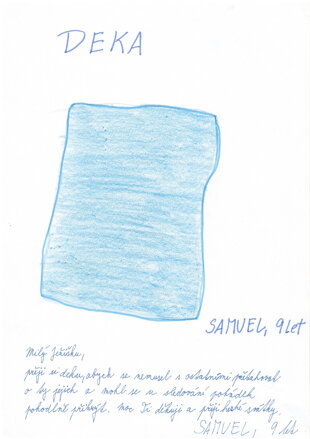 DEKA
SAMUEL, 9 let
Milý Ježíšku,
přeji si deku, abych se nemusel s ostatními přetahovat
o ty jejich a mohl se u sledování pohádek
pohodlně přikrýt. Moc Ti děkuji a přeji hezké svátky.
SAMUEL, 9 let